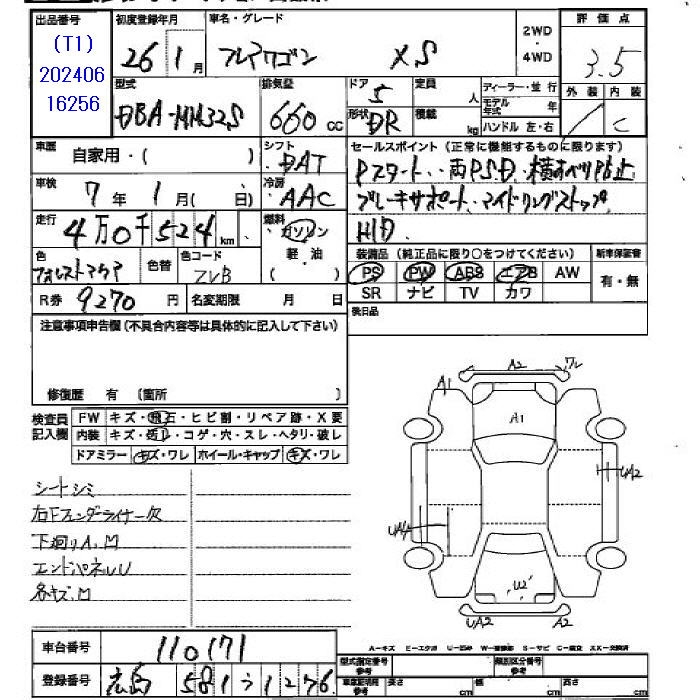 出品番号
(T1)
202406
16256
初度登録年月
26 1月
車名・グレード
フレアワゴン XS
2WD
・
4WD
評価点
3.5
外装 内装
C
型式
DBA-MM32S
排気量
660 cc
ドア
5
形状
DR
定員
人
積載
kg
ディーラー・並行
モデル年式 年
ハンドル 左・右
車歴
自家用・( )
シフト
DAT
セールスポイント(正常に機能するものに限ります)
Pスタート・両PSD・横すべり防止
ブレーキサポート・アイドリングストップ
HID
車検
7年 1月( 日)
冷房
AAC
走行
4万0千524km
燃料
ガソリン
軽・油
( )
色
色替
色コード
ZVB
装備品(純正品に限り○をつけてください)
PS PW ABS エアB AW
SR ナビ TV カワ
新車保証書
有・無
R券 9270 円
名変期限 月 日
後日品
注意事項申告欄(不具合内容等は具体的に記入して下さい)
修復歴 有 〔箇所 〕
検査員記入欄
FW キズ・飛石・ヒビ割・リペア跡・X要
内装 キズ・汚レ・コゲ・穴・スレ・ヘタリ・破レ
ドアミラー キズ・ワレ ホイール・キャップ キズ・ワレ
シートシミ
右Fフェンダーライナー欠
下廻りA.M
エンドパネルU
各キズ.M
A2
ワレ
A1
A1
UA2
UA4
U2
UA2
A2
車台番号
110171
登録番号
広島 581 1276
A-キズ E-エクボ U-凹み W-補修跡 S-サビ C-腐食 XX-交換済
型式指定番号
参考
類別区分番号
参考
長さ cm
幅 cm
高さ cm